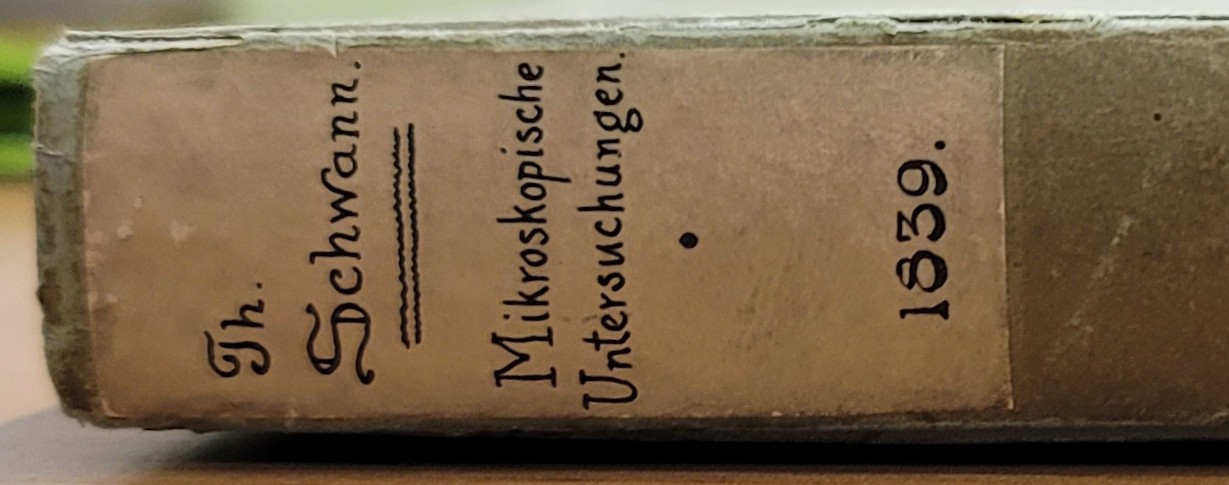 Th.
Schwann.
Mikroskopische
Untersuchungen.
1839.